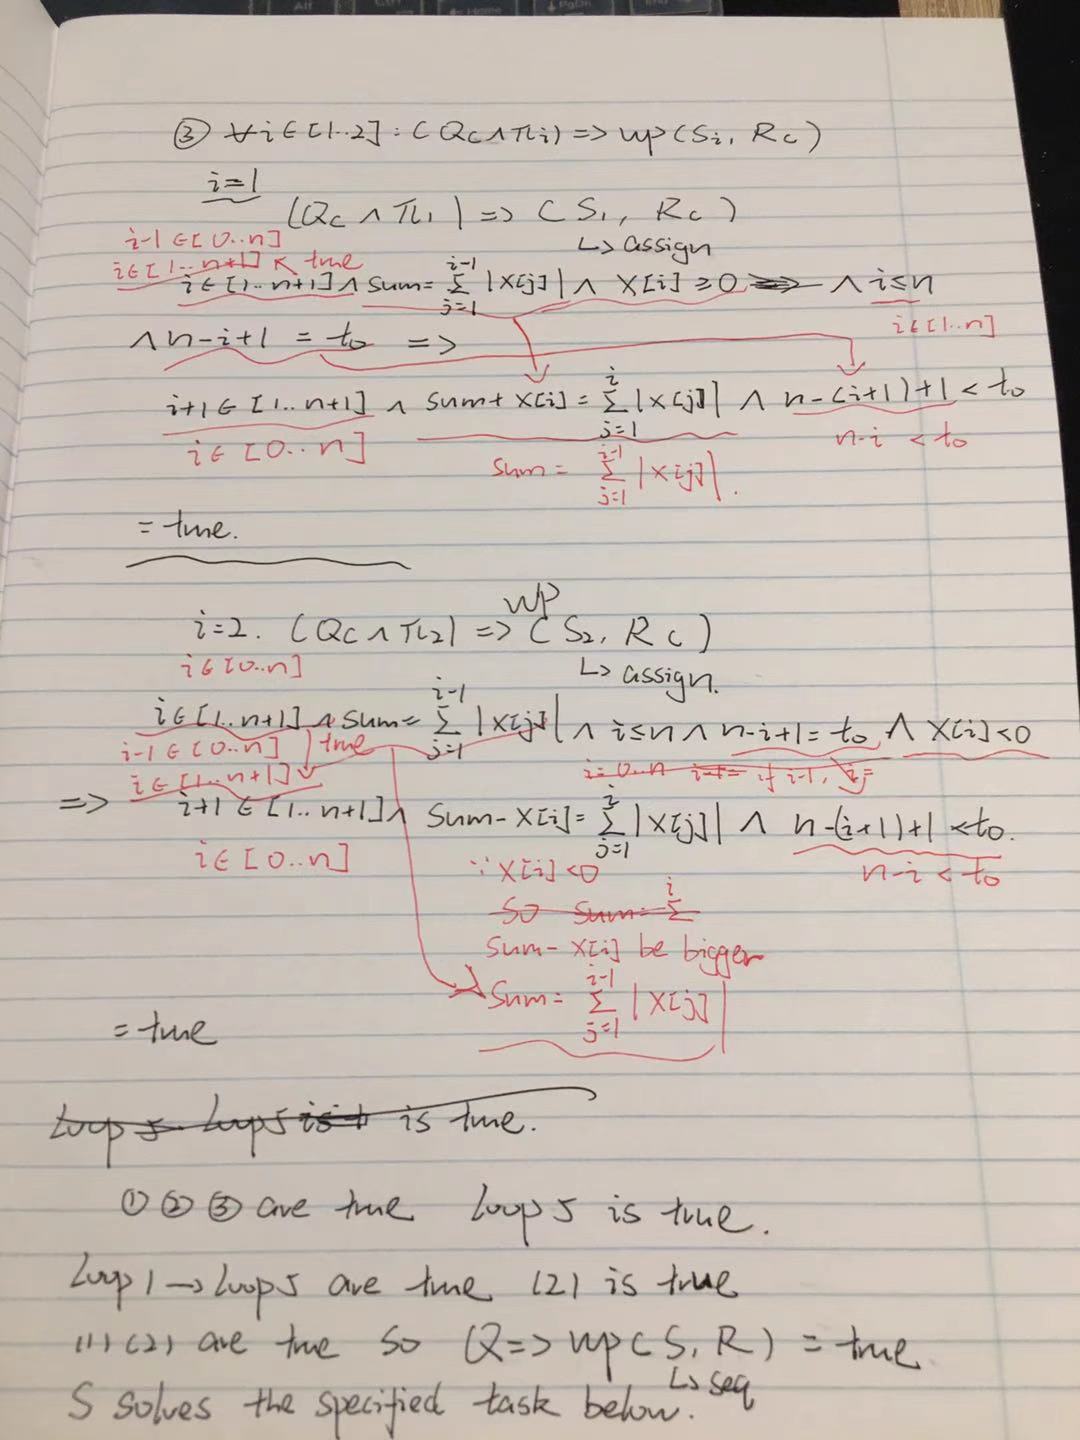 ③ ∀i∈[1..2]: (Qc∧πi) => wp(Si, Rc)
i=1
(Qc ∧ π1) => (S1, Rc)
↳ assign
i-1∈[0..n]
i∈[1..n+1] ↖ true
i∈[1..n+1] ∧ sum= ∑_{j=1}^{i-1} |x[j]| ∧ x[i]≥0 => ∧ i≤n
i∈[1..n]
∧ n-i+1 = t0 =>
i+1∈[1..n+1] ∧ sum+x[i]= ∑_{j=1}^{i} |x[j]| ∧ n-(i+1)+1 < t0
i∈[0..n]
n-i < t0
sum= ∑_{j=1}^{i-1} |x[j]|.
= true.
wp
i=2. (Qc∧π2) => (S2, Rc)
i∈[0..n]
↳ assign.
i∈[1..n+1] ∧ sum= ∑_{j=1}^{i-1} |x[j]| ∧ i≤n ∧ n-i+1=t0 ∧ x[i]<0
i-1∈[0..n] true
i∈[1..n+1]
i=0..n if i-1,
=> i+1∈[1..n+1] ∧ sum-x[i]= ∑_{j=1}^{i} |x[j]| ∧ n-(i+1)+1 < t0.
i∈[0..n]
n-i < t0
∵ x[i]<0
so sum= ∑^{i}
sum-x[i] be bigger
sum= ∑_{j=1}^{i-1} |x[j]|
= true
Loop 5 Loop5 is t is true.
① ② ③ are true Loop 5 is true.
Loop 1 → Loop5 are true (2) is true
(1) (2) are true so (Q=> wp(S, R) = true
↳ seq
S solves the specified task below.